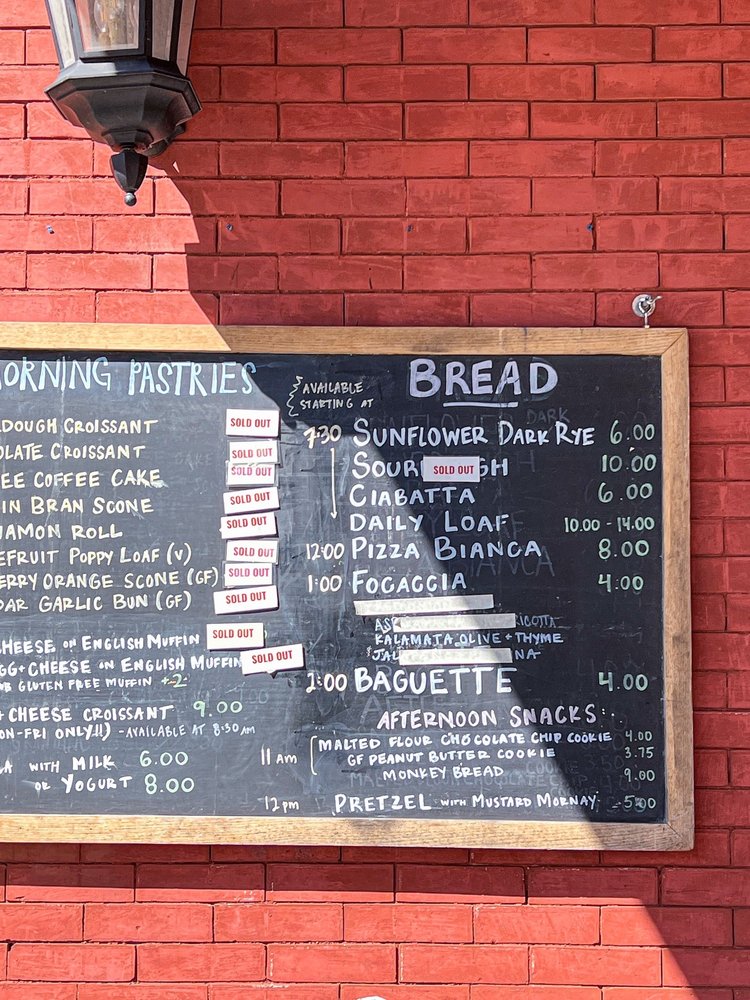 ORNING PASTRIES
DOUGH CROISSANT SOLD OUT
OLATE CROISSANT SOLD OUT
EE COFFEE CAKE SOLD OUT
IN BRAN SCONE SOLD OUT
NAMON ROLL SOLD OUT
EFRUIT POPPY LOAF (V) SOLD OUT
ERRY ORANGE SCONE (GF) SOLD OUT
DAR GARLIC BUN (GF) SOLD OUT
CHEESE ON ENGLISH MUFFIN SOLD OUT
GG + CHEESE ON ENGLISH MUFFIN SOLD OUT
GLUTEN FREE MUFFIN +2
+ CHEESE CROISSANT 9.00
ON-FRI ONLY!!) - AVAILABLE AT 8:30 AM
LA WITH MILK 6.00
OR YOGURT 8.00
BREAD
AVAILABLE
STARTING AT
7:30 SUNFLOWER DARK RYE 6.00
SOUR SOLD OUT GH 10.00
CIABATTA 6.00
DAILY LOAF 10.00 - 14.00
12:00 PIZZA BIANCA 8.00
1:00 FOCACCIA 4.00
AS RICOTTA
KALAMATA OLIVE + THYME
JAL NA
2:00 BAGUETTE 4.00
AFTERNOON SNACKS:
MALTED FLOUR CHOCOLATE CHIP COOKIE 4.00
11 AM GF PEANUT BUTTER COOKIE 3.75
MONKEY BREAD 9.00
12 PM PRETZEL WITH MUSTARD MORNAY - 5.00